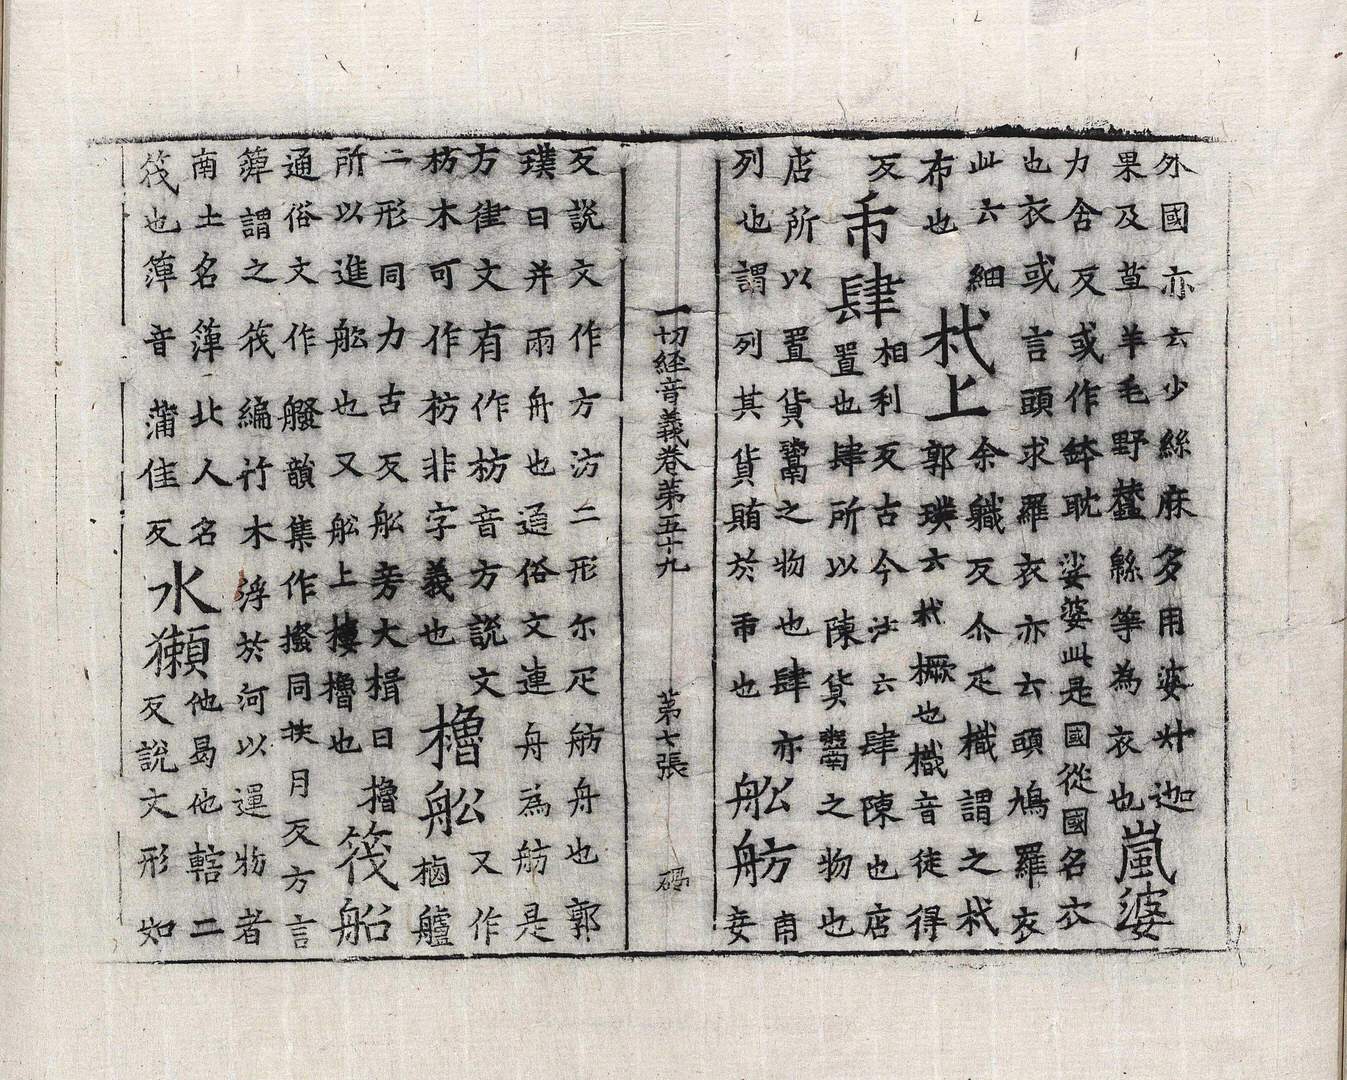 外國亦云少絲麻多用婆𦭘迦
果及草羊毛野蠶絲等為衣也嵐婆
力含反或作鉢耽娑婆此是國從國名衣
也衣或言頭求羅衣亦云頭鳩羅衣
此云細布也
杙上余職反尒疋樴謂之杙
郭璞云杙橛也樴音徒得反
市肆相利反古今注云肆陳也店
置也肆所以陳貨鬻之物也
店所以置貨鬻之物也肆亦
列也謂列其貨賄於市也
舩舫甫妄
一切経音義卷苐五十九 苐七張
反說文作方汸二形尒疋舫舟也郭
璞曰并兩舟也通俗文連舟為舫是
方律文有作枋音方說文
枋木可作枋非字義也
艣舩又作樐艫
二形同力古反舩旁大楫曰櫓
所以進舩也又舩上樓櫓也
筏船
通俗文作橃韻集作撥同扶月反方言
簰謂之筏編竹木浮於河以運物者
南土名簰北人名
筏也簰音蒲佳反
水獺他曷他轄二
反說文形如